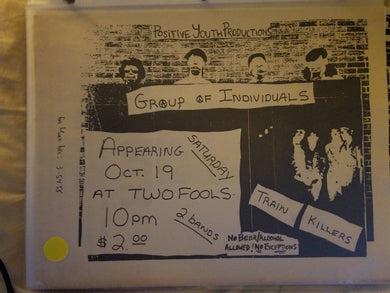 POSITIVE YOUTH PRODUCTIONS
GROUP OF INDIVIDUALS
APPEARING
SATURDAY
OCT. 19
AT TWO FOOLS
10pm
2 bands
$2.00
TRAIN KILLERS
NO BEER/ALCOHOL
ALLOWED! NO EXCEPTIONS